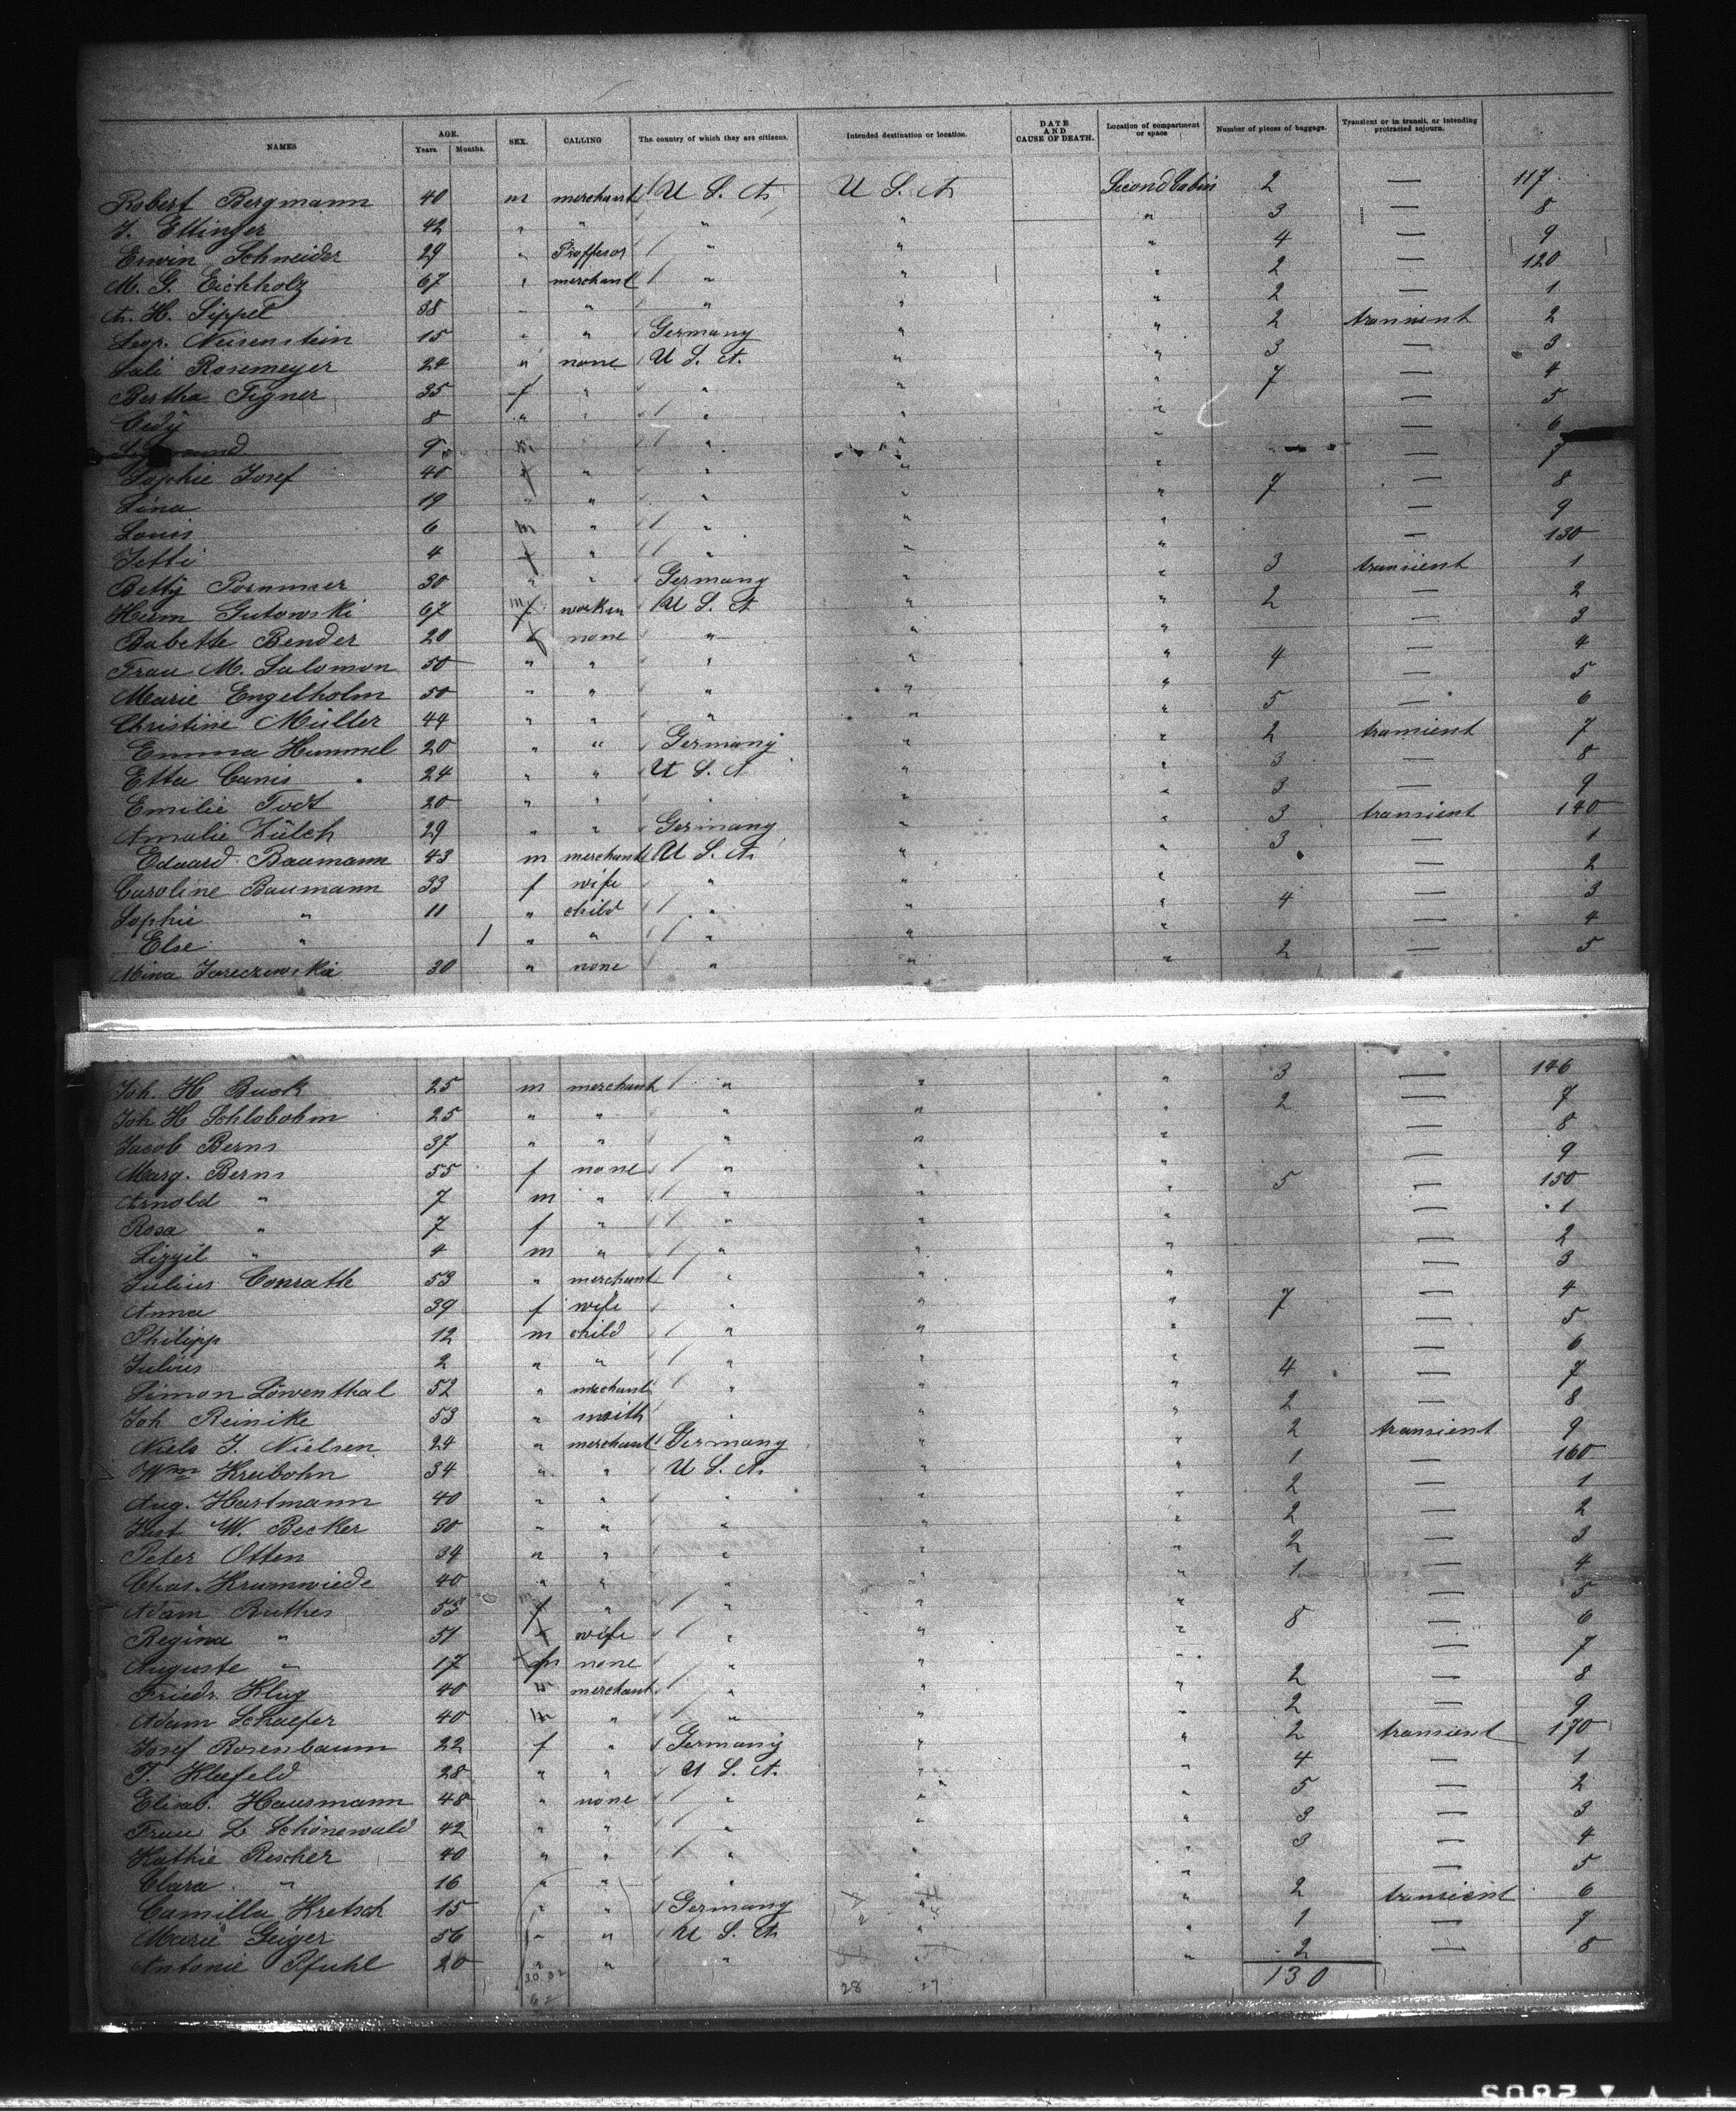 NAMES AGE. Years. Months. SEX. CALLING The country of which they are citizens. Intended destination or location. DATE AND CAUSE OF DEATH. Location of compartment or space Number of pieces of baggage. Transient or in transit, or intending protracted sojourn.
Robert Bergmann 40 m merchant U S. A. U S. A. Second Cabin 2 — 117
J. Ettinger 42 " " " " " 3 — 8
Erwin Schneider 29 " Proffesor " " " 4 — 9
M. G. Eichholz 67 " merchant " " " 2 — 120
A. H. Sippel 38 " " " " " 2 — 1
Leop. Neisenstein 15 " " Germany " " 2 transient 2
Sali Rosemeyer 24 " none U S. A. " " 3 — 3
Bertha Figner 35 f " " " " 7 — 4
Cedy 8 " " " " " — 5
9 m " " " — 6
Sophie Josef 40 f " " " " — 7
Lina 19 " " " " " 7 — 8
Louis 6 m " " " " — 9
Jetti 4 f " " " " — 130
Betty Pommer 30 " " Germany " " 3 transient 1
Herm Gutowski 67 m U S. A. " " 2 — 2
Babeth Bender 20 f none " " " — 3
Frau M. Salomon 50 " " " " " 4 — 4
Marie Engelholm 50 " " " " " — 5
Christine Müller 44 " " " " " 5 — 6
Emma Hummel 20 " " Germany " " 2 transient 7
Etta Canis 24 " " U S. A. " " 3 — 8
Emilie Todt 20 " " " " " 3 — 9
Amalie Zülch 29 " " Germany " " 3 transient 140
Eduard Baumann 43 m merchant U S. A. " " 3 — 1
Caroline Baumann 33 f wife " " " 2
Sophie " 11 " child " " " 4 — 3
Else " 1 " " " " " 4
Mina Jareczewskia 30 " none " " " 2 — 5
Joh. H Buck 25 m merchant " " " 3 — 146
Joh H Schlobohm 25 " " " " " 2 — 7
Jacob Berns 37 " " " " " — 8
Marg. Berns 55 f none " " " — 9
Arnold " 7 m " " " " 5 — 150
Rosa " 7 f " " " " — 1
Lizzil " 4 m " " " " 2
Julius Conrath 53 " merchant " " " — 3
Anna 39 f wife " " " 7 — 4
Philipp 12 m child " " " — 5
Julius 2 " " " " " — 6
Simon Löwenthal 52 " merchant " " " 4 — 7
Joh Reinike 53 " smith " " " 2 — 8
Niels J. Nielsen 24 " merchant Germany " " 2 transient 9
Wm Kreibohn 34 " " U S. A. " " 1 — 160
Aug. Hartmann 40 " " " " " 2 — 1
Just W. Becker 30 " " " " " 2 — 2
Peter Otten 34 " " " " " 2 — 3
Chas. Krumwiede 40 " " " " " 1 — 4
Adam Ruthes 53 m " " " " — 5
Regina " 51 f wife " " " 8 — 6
Auguste " 17 f none " " " — 7
Friedr. Klug 40 m merchant " " " 2 — 8
Adam Schaefer 40 m " " " " 2 — 9
Josef Rosenbaum 22 f " Germany " " 2 transient 170
T. Kleefeld 28 " " U S. A. " " 4 — 1
Elisab. Hausmann 48 " none " " " 5 — 2
Frau L Schönewald 42 " " " " " 3 — 3
Kathie Rescher 40 " " " " " 3 — 4
Clara " 16 " " " " " — 5
Camilla Kretsch 15 " " Germany " " 2 transient 6
Marie Geiger 56 " " U S. A. " " 1 — 7
Antonie Pfuhl 20 " " " " " 2 — 8
30 32 28 27 130
62